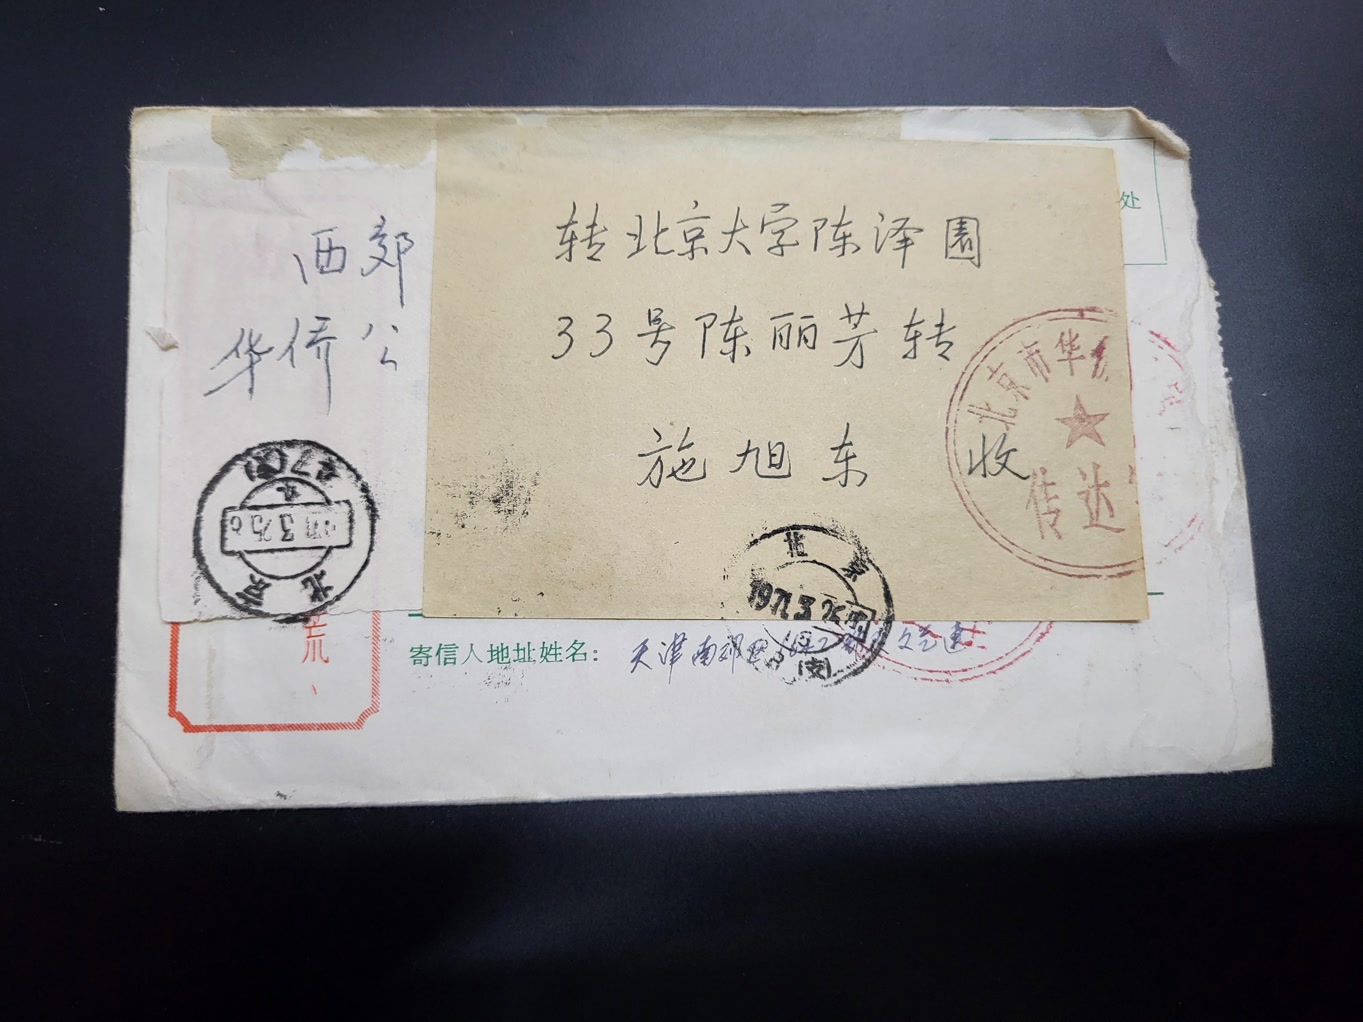 处
西郊
华侨公
转北京大学陈泽园
33号陈丽芳转
施旭东 收
北京市华
传达
47(支)
1971.3.25.
北京
北京
1971.3.25
(支)
荒
寄信人地址姓名：天津南郊